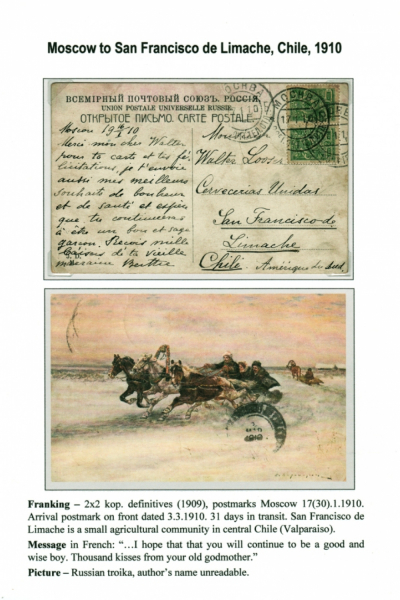 Moscow to San Francisco de Limache, Chile, 1910
ВСЕМІРНЫЙ ПОЧТОВЫЙ СОЮЗЪ. РОССІЯ.
UNION POSTALE UNIVERSELLE RUSSIE.
ОТКРЫТОЕ ПИСЬМО. CARTE POSTALE.
Moscou 10
Merci mon cher Walter
pour ta carte et tes fé-
licitations, je t'envoie
aussi mes meilleurs
souhaits de bonheur
et de santé et espère
que tu continueras
à être un bon et sage
garçon. Reçois mille
baisers de ta vieille
marraine Berthe
Walter
Cervecerias Unidas
San Francisco de
Limache
Chile. Amérique du Sud
МОСКВА
МОСКВА
1910
Franking – 2x2 kop. definitives (1909), postmarks Moscow 17(30).1.1910.
Arrival postmark on front dated 3.3.1910. 31 days in transit. San Francisco de
Limache is a small agricultural community in central Chile (Valparaiso).
Message in French: “…I hope that that you will continue to be a good and
wise boy. Thousand kisses from your old godmother.”
Picture – Russian troika, author’s name unreadable.